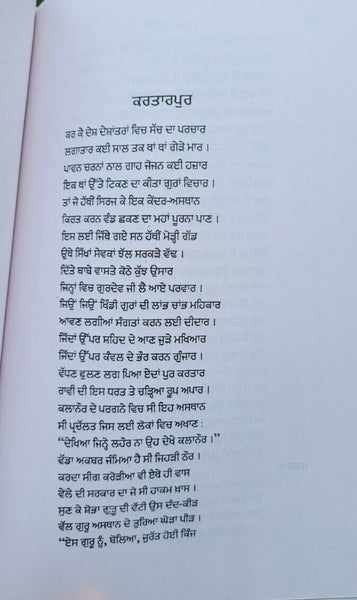 ਕਰਤਾਰਪੁਰ
ਕਰ ਕੇ ਦੇਸ਼ ਦੇਸ਼ਾਂਤਰਾਂ ਵਿਚ ਸੱਚ ਦਾ ਪਰਚਾਰ
ਲਗਾਤਾਰ ਕਈ ਸਾਲ ਤਕ ਥਾਂ ਥਾਂ ਗੇੜੇ ਮਾਰ ।
ਪਾਵਨ ਚਰਨਾਂ ਨਾਲ ਗਾਹ ਜੋਜਨ ਕਈ ਹਜ਼ਾਰ
ਇਕ ਥਾਂ ਉੱਤੇ ਟਿਕਣ ਦਾ ਕੀਤਾ ਗੁਰਾਂ ਵਿਚਾਰ ।
ਤਾਂ ਜੋ ਹੱਥੀਂ ਸਿਰਜ ਕੇ ਇਕ ਕੇਂਦਰ-ਅਸਥਾਨ
ਕਿਰਤ ਕਰਨ ਵੰਡ ਛਕਣ ਦਾ ਮਹਾਂ ਪੂਰਨਾ ਪਾਣ ।
ਇਸ ਲਈ ਜਿੱਥੇ ਗਏ ਸਨ ਹੱਥੀਂ ਮੋੜ੍ਹੀ ਗੱਡ
ਉਥੇ ਸਿੱਖਾਂ ਸੇਵਕਾਂ ਝੱਲ ਸਰਕੜੇ ਵੱਢ ।
ਦਿੱਤੇ ਬਾਬੇ ਵਾਸਤੇ ਕੋਠੇ ਕੁੱਝ ਉਸਾਰ
ਜਿਨ੍ਹਾਂ ਵਿਚ ਗੁਰਦੇਵ ਜੀ ਲੈ ਆਏ ਪਰਵਾਰ ।
ਜਿਉਂ ਜਿਉਂ ਖਿੰਡੀ ਗੁਰਾਂ ਦੀ ਲਾਂਭ ਚਾਂਭ ਮਹਿਕਾਰ
ਆਵਣ ਲਗੀਆਂ ਸੰਗਤਾਂ ਕਰਨ ਲਈ ਦੀਦਾਰ ।
ਜਿੱਦਾਂ ਉੱਪਰ ਸ਼ਹਿਦ ਦੇ ਆਣ ਜੁੜੇ ਮਖਿਆਰ
ਜਿੱਦਾਂ ਉੱਪਰ ਕੰਵਲ ਦੇ ਭੌਰ ਕਰਨ ਗੁੰਜਾਰ ।
ਵੱਧਣ ਫੁਲਣ ਲਗ ਪਿਆ ਏਦਾਂ ਪੁਰ ਕਰਤਾਰ
ਰਾਵੀ ਦੀ ਇਸ ਧਰਤ ਤੇ ਚੜ੍ਹਿਆ ਰੂਪ ਅਪਾਰ ।
ਕਲਾਨੌਰ ਦੇ ਪਰਗਨੇ ਵਿਚ ਸੀ ਇਹ ਅਸਥਾਨ
ਸੀ ਪ੍ਰਚੱਲਤ ਜਿਸ ਲਈ ਲੋਕਾਂ ਵਿਚ ਅਖਾਣ:
“ਦੇਖਿਆ ਜਿਨ੍ਹੇ ਲਹੌਰ ਨਾ ਉਹ ਦੇਖੇ ਕਲਾਨੌਰ ।”
ਵੱਡਾ ਅਕਬਰ ਜੰਮਿਆ ਹੈ ਸੀ ਜਿਹੜੀ ਠੌਰ ।
ਕਰਦਾ ਸੀਗ ਕਰੋੜੀਆ ਵੀ ਏਥੇ ਹੀ ਵਾਸ
ਵੇਲੇ ਦੀ ਸਰਕਾਰ ਦਾ ਜੋ ਸੀ ਹਾਕਮ ਖ਼ਾਸ ।
ਸੁਣ ਕੇ ਸੋਭਾ ਗੁਰੂ ਦੀ ਵੱਟੀ ਉਸ ਦੰਦ-ਕੀੜ
ਵੱਲ ਗੁਰੂ ਅਸਥਾਨ ਦੇ ਤੁਰਿਆ ਘੋੜਾ ਪੀੜ ।
“ਏਸ ਗੁਰੂ ਨੂੰ, ਬੋਲਿਆ, ਜੁਰੱਤ ਹੋਈ ਕਿੰਜ